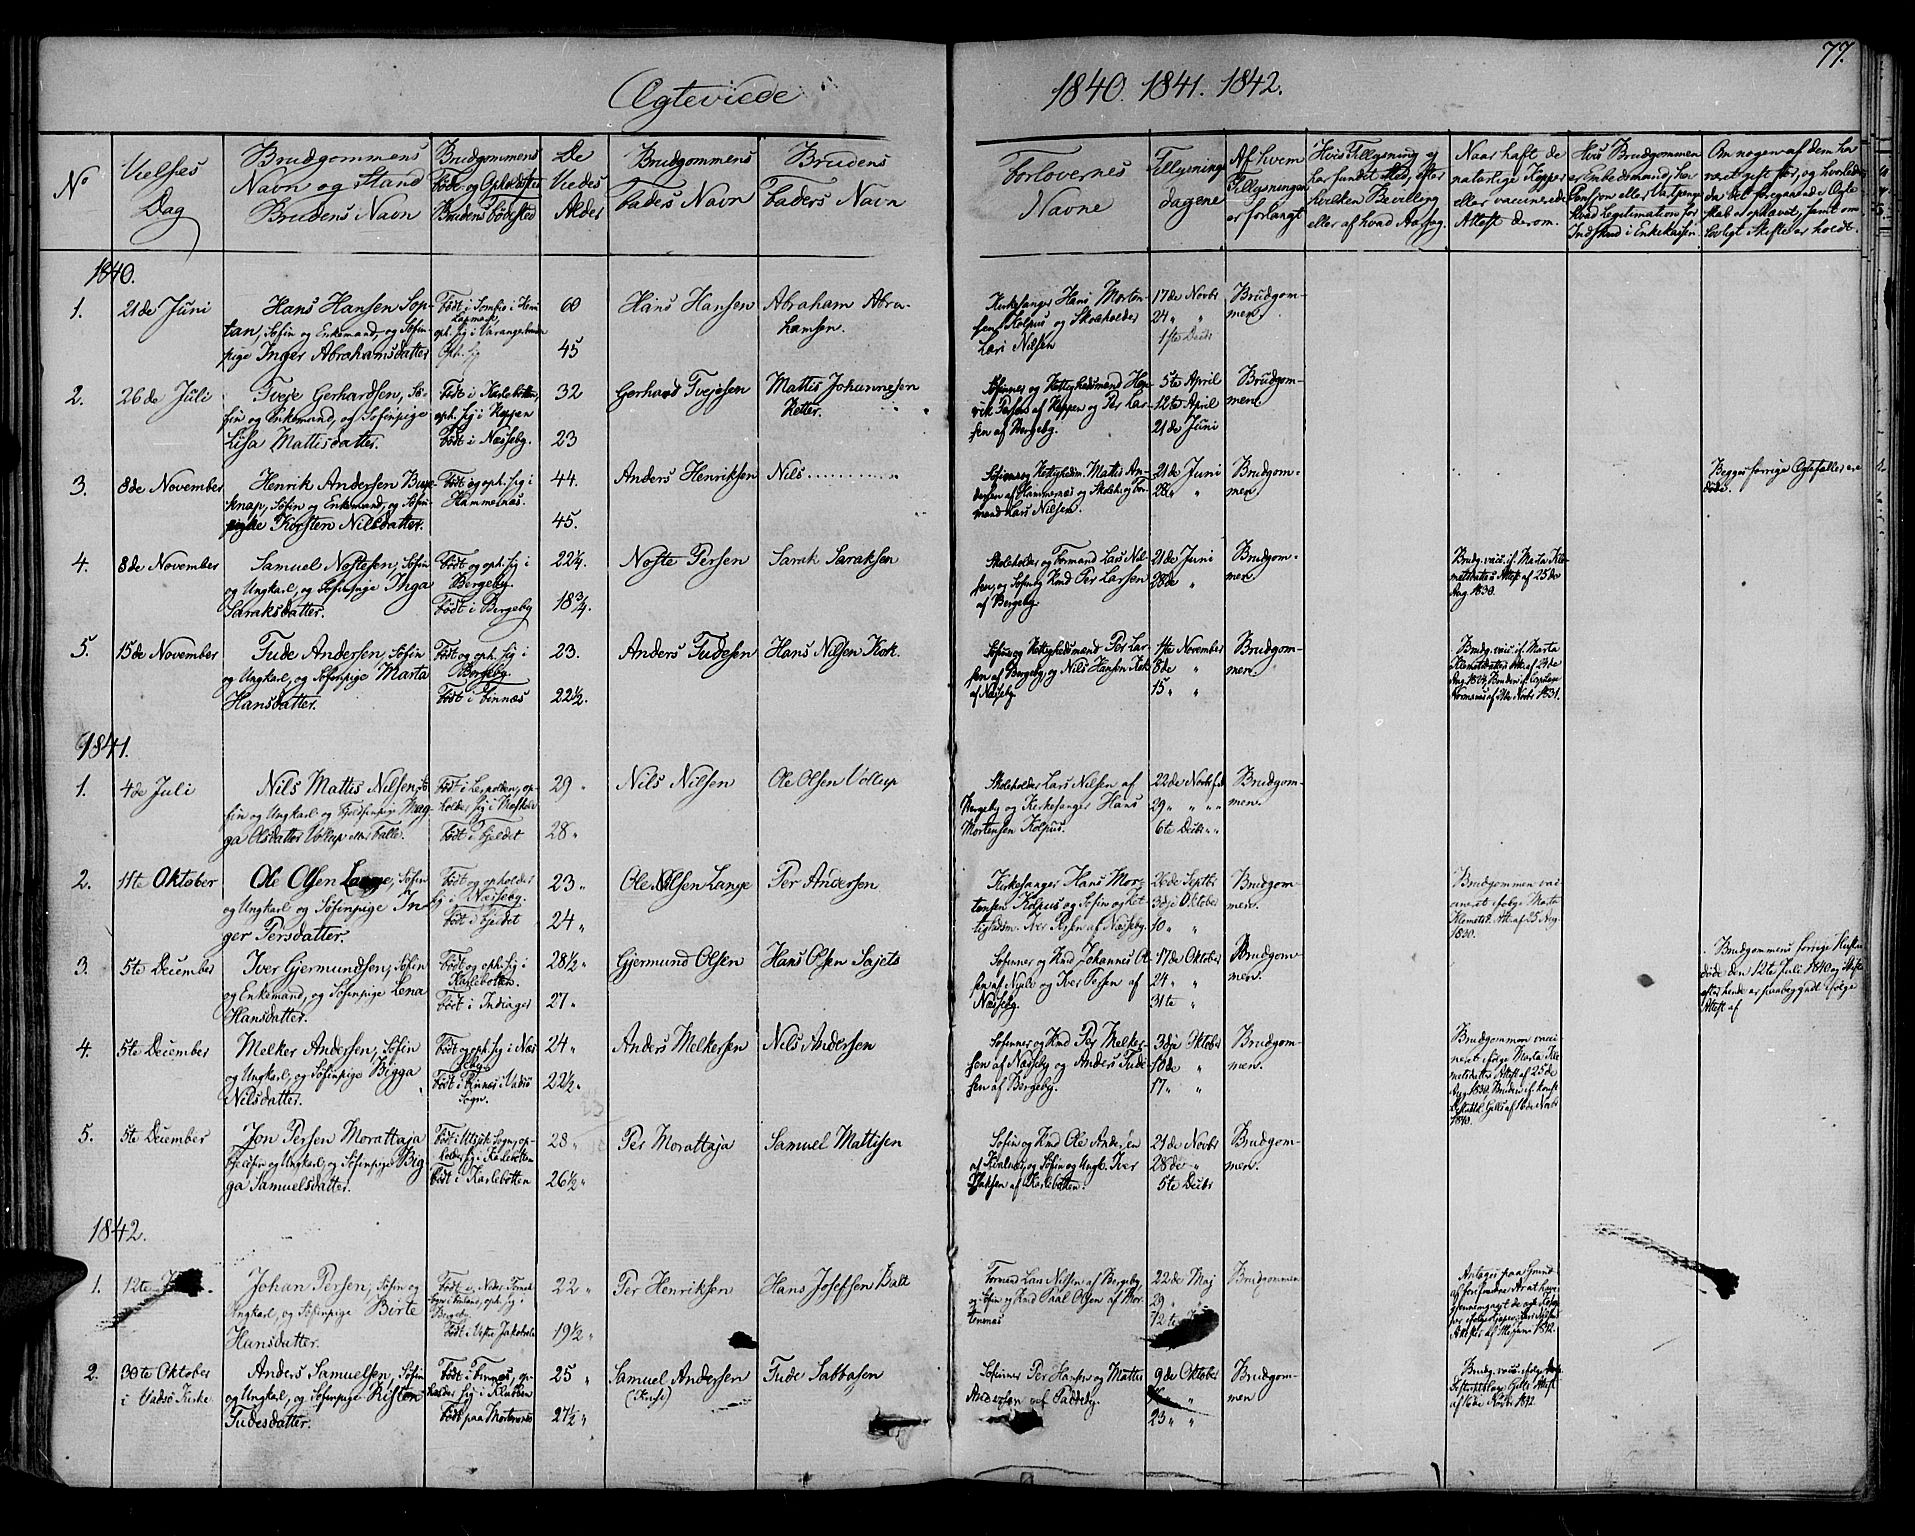 77.
Ægteviede
1840. 1841. 1842.
No
Vielses Dag
Brudgommens Navn og Stand Brudens Navn
Brudgommens Føde og Opholdssted Brudens Fødested
De Viedes Alder
Brudgommens Faders Navn
Brudens Faders Navn
Forlovernes Navne
Tillysnings dagene
Af hvem Tillysningen er forlangt
Hvis Tillysning ej har fundet Sted, efter hvilken Bevilling eller af hvad Aarsag.
Naar haft de naturlige Kopper eller vaccinerede Attest derom.
Hvis Brudgommen er Embedsmand, har Pension eller Vartpenge hvad Legitimation for Indskud i Enkekassen
Om nogen af dem har været gift før, og hvorledes da det foregaaende Ægteskab er ophævet, samt om lovligt Skifte er holdt.
1840.
1.
21de Juni
Hans Hansen Sop-
tan, Søfin og Enkemand, og Søfin-
pige Inger Abrahamsdatter
60
45
Hans Hansen
Abraham Abra-
hamsen.
Kirkesanger Hans Morten-
sen Kolpus og Skoleholder
Lars Nilsen
17de Novbr
24 " "
1ste Decbr
Brudgom-
men.
2.
26de Juli
Tveje Gerhardsen, Sø-
fin og Enkemand, og Søfinpige
Lisa Mattisdatter.
Født i Karlebotten,
oph. sig i Keppen
Født i Næsseby.
32
23
Gerhard Tvejesen
Mattis Johannesen
Ketter.
sen af Bergeby.
5te April
12te April
21de Juni
Brudgom-
men.
3.
8de November
Henrik Andersen Busk-
knap, Søfin og Enkemand, og Søfin-
pige Kirsten Nilsdatter.
Født og oph. sig i
Hammernæs.
44.
45.
Anders Henriksen
Nils
mand Lars Nilsen.
21de Juni
28de "
Brudgom-
men.
Begges forrige Ægtefaller ere
døde.
4.
8de November
Samuel Nostesen, Søfin
og Ungkarl, og Søfinpige Inga
Saraksdatter.
Født og oph. sig i
Bergeby.
Født i Bergeby
22¼.
18¾.
Noste Persen
Sarak Saraksen
Skoleholder og Formand Lars Nil-
sen, og Søfin og Kmd Per Larsen
af Bergeby.
21de Juni
28de "
Brudgom-
men.
Brudg. vacc. if. Marta Kle-
metsdatters Attest af 25de
Aug 1830.
5.
15de November
Tude Andersen, Søfin
og Ungkarl, og Søfinpige Marta
Hansdatter.
Født og oph. sig i
Bergeby.
Født i Finnæs
23.
22½.
Anders Tudesen
Hans Nilsen Kok.
Søfin og Kettighedsmand Per Lar-
sen af Bergeby, og Nils Hansen Kok
af Næsseby.
1ste November
8de "
15 " "
Brudgom-
men.
Brudg. vacc. if. Marta
1841.
1.
4de Juli
Nils Mattis Nilsen, Sø-
fin og Ungkarl og Fjeldfinpige Mag-
ga Olsdatter Vollup eller Falle.
Født i Fjeldet
29 "
28 "
Nils Nilsen
Ole Olsen Vollup
Skoleholder Lars Nilsen af
Bergeby og Kirkesanger Hans
Mortensen Kolpus.
22de Novbr
29 " " "
6te Decbr "
Brudgom-
men.
2.
11te Oktober
Ole Olsen Lange, Søfin
og Ungkarl og Søfinpige In-
ger Persdatter.
Født og opholder
sig i Næsseby.
Født i Fjeldet
23 "
24 "
Ole Nilsen Lange
Per Andersen
Kirkesanger Hans Mor-
tensen Kolpus og Søfin og Ket-
tighedsm. Iver Persen af Næsseby.
26de Septbr
3die Oktober
10 " "
Brudgom-
men.
Brudgommen vac-
cineret ifølge Marta
Klemetsd. Att. af 25 Aug.
1830.
3.
5te December
Iver Gjermundsen, Søfin
og Enkemand, og Søfinpige Lena
Hansdatter.
Født og oph. sig i
Karlebotten.
Født i Indiager
28½ "
27 "
Gjermund Olsen
Hans Olsen Sajets
Søfinner og Kmd Johannes Ol-
sen af Nyeli og Iver Persen af
Næsseby.
17de Oktober
24 " "
31te "
Brudgom-
men.
Brudgommens forrige Kone
døde den 12te Juli 1840 og Skifte
efter hende er paabegyndt ifølge
Attest af
4.
5te December
Melker Andersen, Søfin
og Ungkarl, og Søfinpige Bigga
Nilsdatter.
Født og oph. sig i Næs
seby.
Født i Finnæs i Vadsø
Sogn.
24 "
22½ "
Anders Melkersen
Nils Andersen
Søfinner og Kmd Per Melker-
sen af Næsseby og Anders Tude-
sen af Bergeby.
3die Oktober
10de "
17 " "
Brudgom-
men.
Brudgommen vacci-
neret ifølge Marta Kle-
metsdatters Attest af 25de
Aug 1830. Bruden if. Konst.
Distriktl. Gills af 16de Novbr
1840.
5.
5te December
Jon Persen Morattaja
Fjeldfin og Ungkarl, og Søfinpige Big-
ga Samuelsdatter.
Født i Utsjok Sogn, op-
holder sig i Karlebotten
Født i Karlebotten
28 "
26½ "
Per Morattaja
Samuel Mattisen
Søfin og Kmd Ole Andersen
Isaksen af Karlebotten.
21de Novbr
28de "
5te Decbr
Brudgom-
men.
1842.
1.
12te
Johan Persen, Søfin og
Ungkarl, og Søfinpige Birte
Hansdatter.
22 "
19½ "
Per Henriksen
Hans Josefsen Balt
Formand Lars Nilsen af Bergeby
og Søfin og Kmd Paal Olsen af Mor-
tensnæs
22de Maj
29 "
12te
Brudgommen
2.
30te Oktober
i Vadsø Kirke
Anders Samuelsen, Søfin
og Ungkarl, og Søfinpige Kirsten
Tudesdatter.
Født i Finnæs, op-
holder sig i Klubben
Født paa Mortensnæs
25 "
27½ "
Samuel Andersen
Tude Sabbasen
Søfinner Per Hansen og Mattis
Andersen af Paddeby.
9de Oktober
23 " "
Brudgom-
men